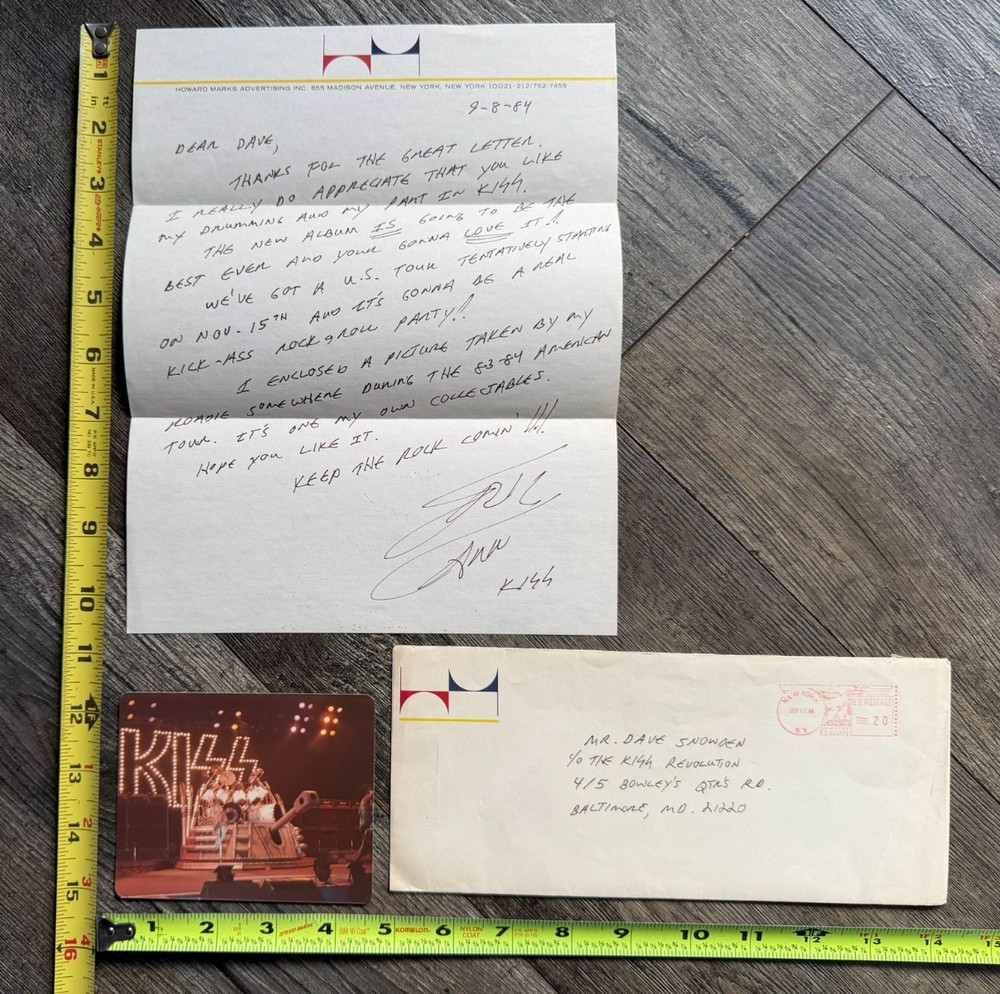 HOWARD MARKS ADVERTISING INC. 655 MADISON AVENUE, NEW YORK, NEW YORK 10021·212/752·7455
9-8-84
DEAR DAVE,
THANKS FOR THE GREAT LETTER.
I REALLY DO APPRECIATE THAT YOU LIKE
MY DRUMMING AND MY PART IN KISS.
THE NEW ALBUM IS GOING TO BE THE
BEST EVER AND YOUR GONNA LOVE IT!!
WE'VE GOT A U.S. TOUR TENTATIVELY STARTING
ON NOV. 15TH AND IT'S GONNA BE A REAL
KICK-ASS ROCK & ROLL PARTY!!
I ENCLOSED A PICTURE TAKEN BY MY
ROADIE SOMEWHERE DURING THE 83-84 AMERICAN
TOUR. IT'S ONE MY OWN COLLECTABLES.
HOPE YOU LIKE IT.
KEEP THE ROCK COMIN'!!!
KISS
KISS
NEW YORK
N.Y.
U.S. POSTAGE
.20
MR. DAVE SNOWDEN
C/O THE KISS REVOLUTION
415 BOWLEY'S QTR'S RD.
BALTIMORE, MD. 21220
1 in ft 2 STANLEY 3 4 5 6 MADE IN U.S.A. 7 8 9 10 11 12 13 14 15 16
1 2 3 SPEED MARK 4 5 KOMELON 6 NYLON COAT 7 8 9 10 11 12 13 14 15